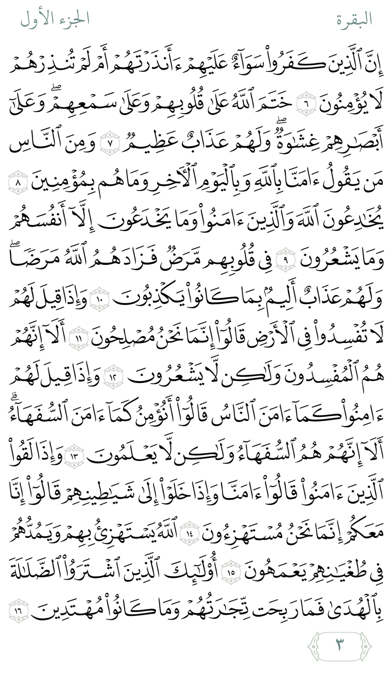 البقرة الجزء الأول
إِنَّ ٱلَّذِينَ كَفَرُوا۟ سَوَآءٌ عَلَيْهِمْ ءَأَنذَرْتَهُمْ أَمْ لَمْ تُنذِرْهُمْ
لَا يُؤْمِنُونَ ٦ خَتَمَ ٱللَّهُ عَلَىٰ قُلُوبِهِمْ وَعَلَىٰ سَمْعِهِمْ ۖ وَعَلَىٰٓ
أَبْصَٰرِهِمْ غِشَٰوَةٌ ۖ وَلَهُمْ عَذَابٌ عَظِيمٌ ٧ وَمِنَ ٱلنَّاسِ
مَن يَقُولُ ءَامَنَّا بِٱللَّهِ وَبِٱلْيَوْمِ ٱلْءَاخِرِ وَمَا هُم بِمُؤْمِنِينَ ٨
يُخَٰدِعُونَ ٱللَّهَ وَٱلَّذِينَ ءَامَنُوا۟ وَمَا يَخْدَعُونَ إِلَّآ أَنفُسَهُمْ
وَمَا يَشْعُرُونَ ٩ فِى قُلُوبِهِم مَّرَضٌ فَزَادَهُمُ ٱللَّهُ مَرَضًا ۖ
وَلَهُمْ عَذَابٌ أَلِيمٌۢ بِمَا كَانُوا۟ يَكْذِبُونَ ١٠ وَإِذَا قِيلَ لَهُمْ
لَا تُفْسِدُوا۟ فِى ٱلْأَرْضِ قَالُوٓا۟ إِنَّمَا نَحْنُ مُصْلِحُونَ ١١ أَلَآ إِنَّهُمْ
هُمُ ٱلْمُفْسِدُونَ وَلَٰكِن لَّا يَشْعُرُونَ ١٢ وَإِذَا قِيلَ لَهُمْ
ءَامِنُوا۟ كَمَآ ءَامَنَ ٱلنَّاسُ قَالُوٓا۟ أَنُؤْمِنُ كَمَآ ءَامَنَ ٱلسُّفَهَآءُ ۗ
أَلَآ إِنَّهُمْ هُمُ ٱلسُّفَهَآءُ وَلَٰكِن لَّا يَعْلَمُونَ ١٣ وَإِذَا لَقُوا۟
ٱلَّذِينَ ءَامَنُوا۟ قَالُوٓا۟ ءَامَنَّا وَإِذَا خَلَوْا۟ إِلَىٰ شَيَٰطِينِهِمْ قَالُوٓا۟ إِنَّا
مَعَكُمْ إِنَّمَا نَحْنُ مُسْتَهْزِءُونَ ١٤ ٱللَّهُ يَسْتَهْزِئُ بِهِمْ وَيَمُدُّهُمْ
فِى طُغْيَٰنِهِمْ يَعْمَهُونَ ١٥ أُو۟لَٰٓئِكَ ٱلَّذِينَ ٱشْتَرَوُا۟ ٱلضَّلَٰلَةَ
بِٱلْهُدَىٰ فَمَا رَبِحَت تِّجَٰرَتُهُمْ وَمَا كَانُوا۟ مُهْتَدِينَ ١٦
٣